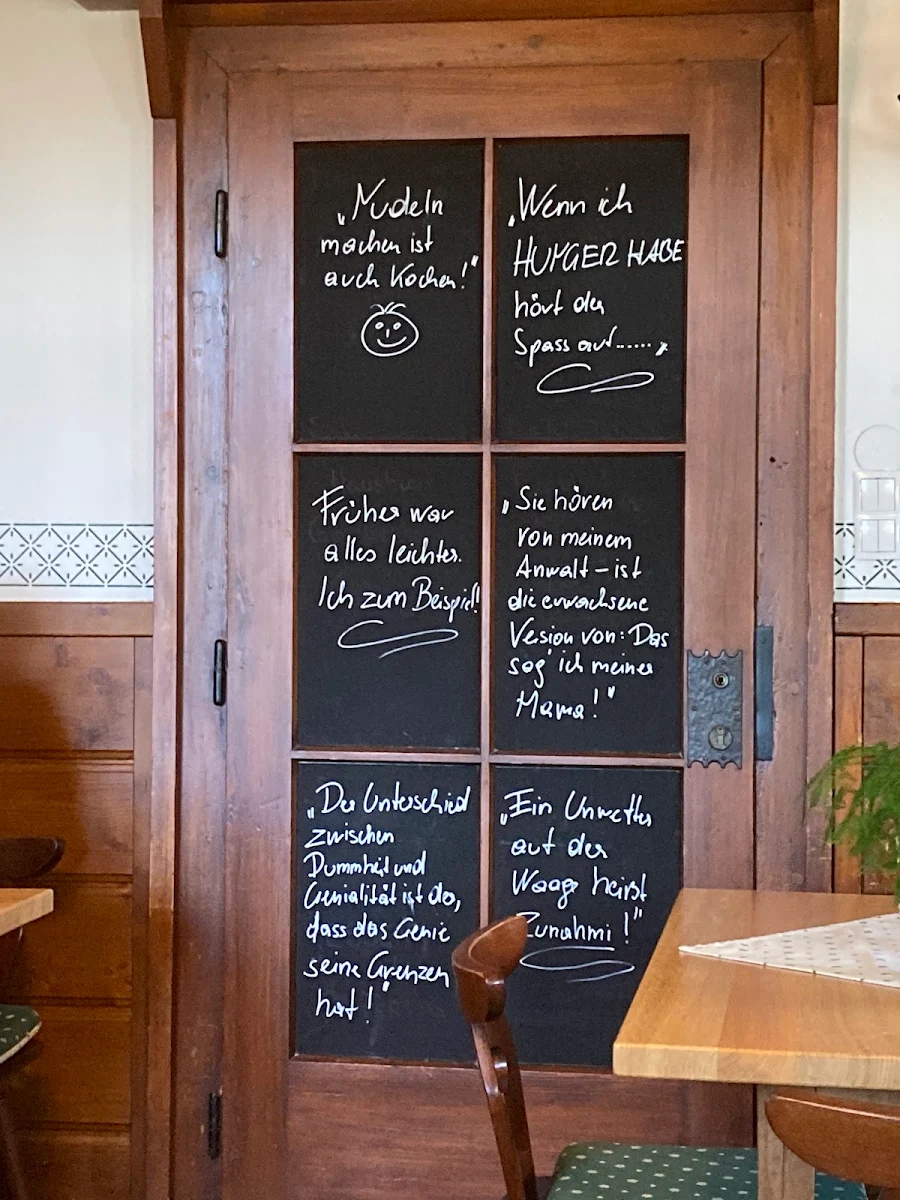 „Nudeln
machen ist
auch Kochen!"
„Wenn ich
HUNGER HABE
hört der
Spass auf......"
Früher war
alles leichter.
Ich zum Beispiel!
„Sie hören
von meinem
Anwalt – ist
die erwachsene
Vesion von: Das
sag' ich meiner
Mama!"
„Der Unterschied
zwischen
Dummheit und
Genialität ist do,
dass das Genie
seine Grenzen
hat!"
„Ein Unwetter
auf der
Waage heisst
Zunahmi!"